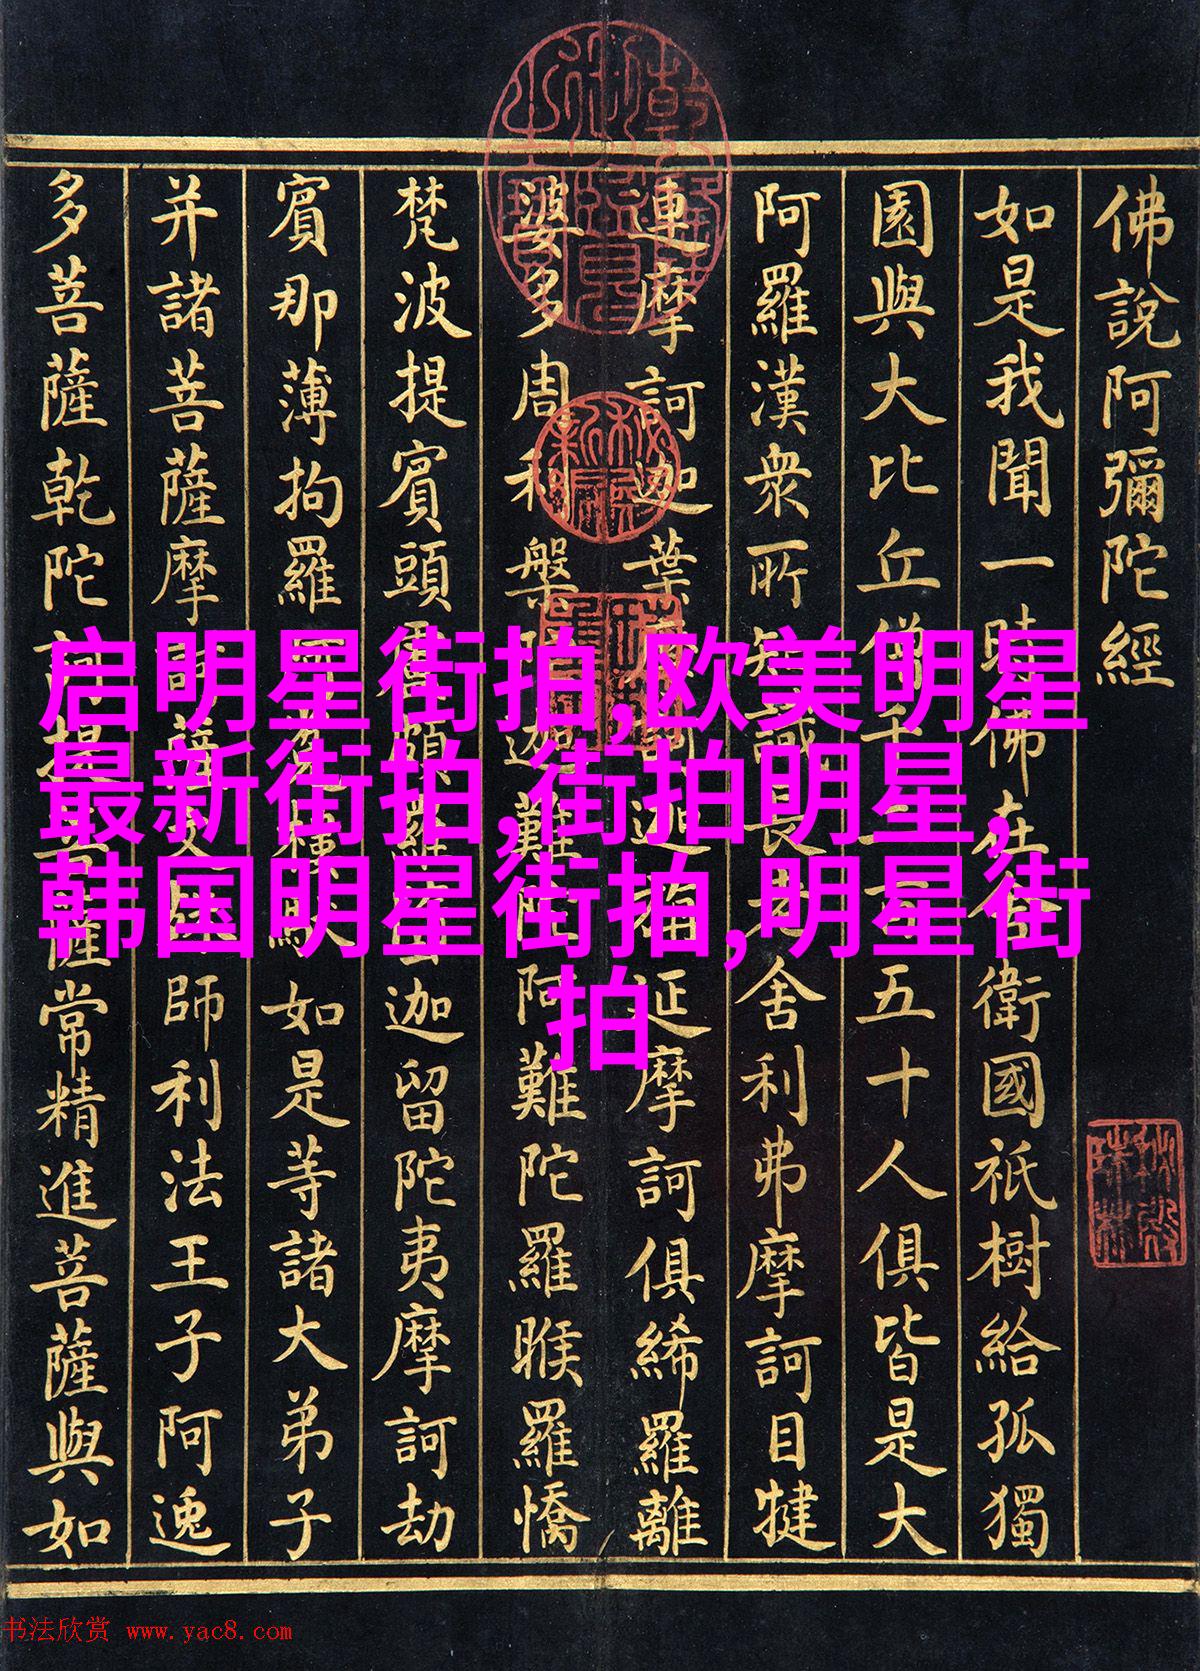 佛說阿彌陀經
如是我聞一時佛在舍衛國祇樹給孤獨
園與大比丘僧千二百五十人俱皆是大
阿羅漢衆所知識長老舍利弗摩訶目犍
連摩訶迦葉摩訶迦旃延摩訶俱絺羅離
婆多周利槃陀迦難陀阿難陀羅睺羅憍
梵波提賓頭盧頗羅墮迦留陀夷摩訶劫
賓那薄拘羅阿㝹樓馱如是等諸大弟子
并諸菩薩摩訶薩文殊師利法王子阿逸
多菩薩乾陀訶提菩薩常精進菩薩與如
启明星街拍,欧美明星
最新街拍,街拍明星,
韩国明星街拍,明星街
拍
书法欣赏 www.yac8.com